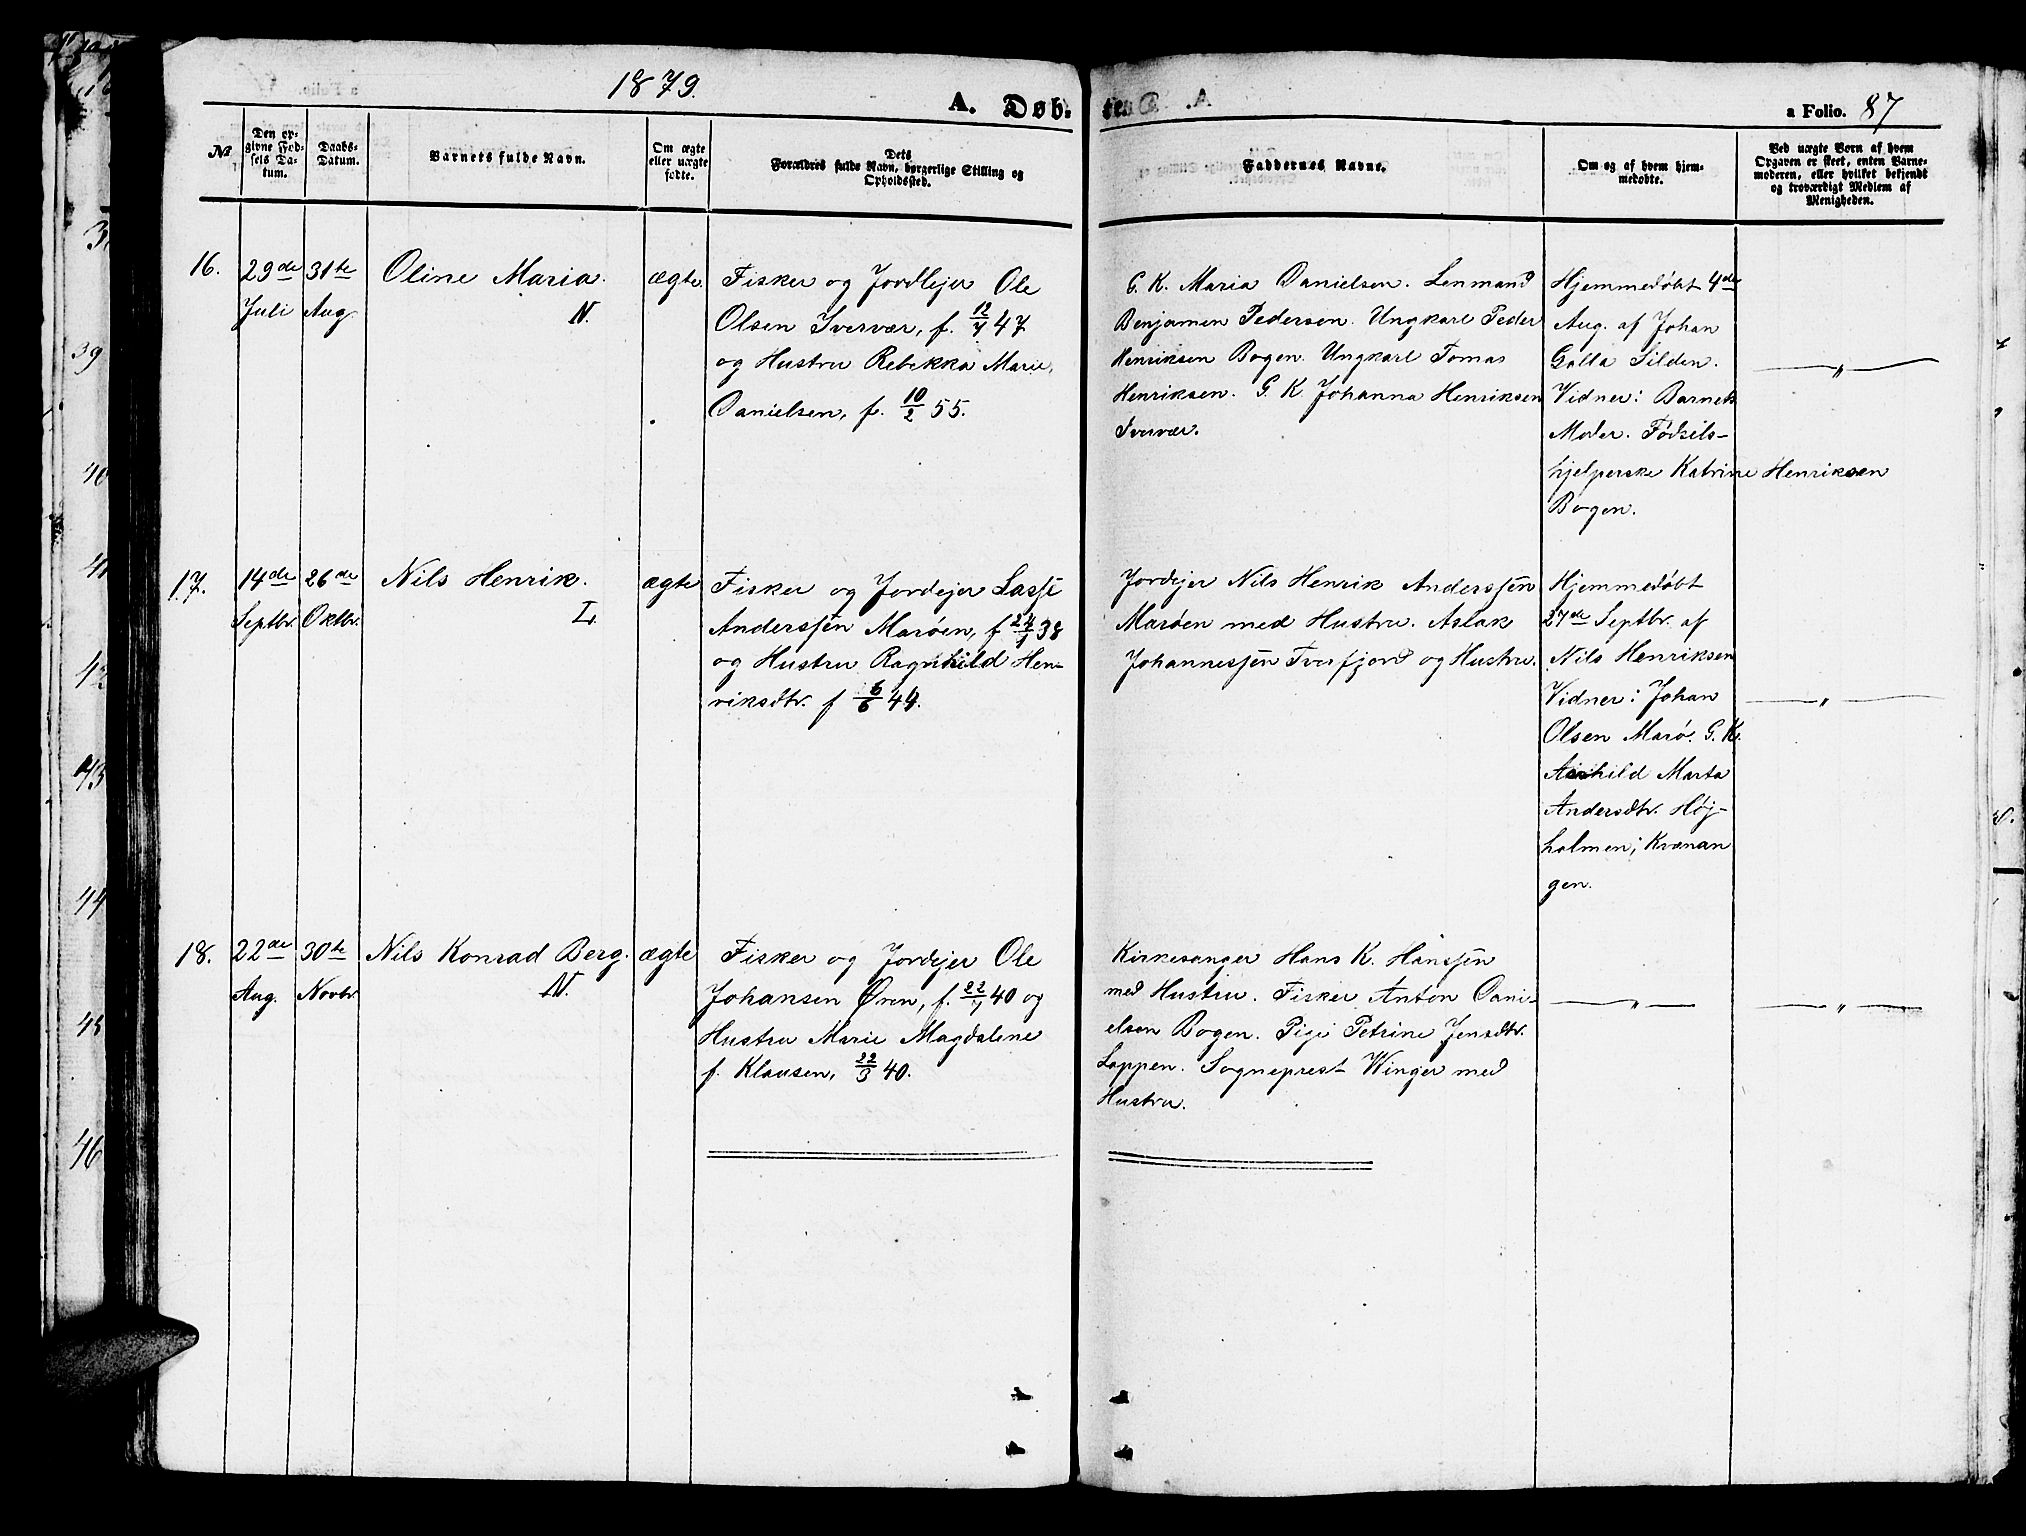 1879.
A. Døb-
te.
a Folio. 87
No
Den op-
givne Fød-
sels Da-
tum.
Daabs-
Datum.
Barnets fulde Navn.
Om ægte
eller uægte
fødte.
Dets
Forældres fulde Navn, borgerlige Stilling og
Opholdssted.
Faddernes Navne.
Om og af hvem hjem-
medøbte.
Ved uægte Børn af hvem
Opgaven er skeet, enten Barne-
moderen, eller hvilket bekjendt
og troværdigt Medlem af
Menigheden.
16.
29de
Juli
31te
Aug
Oline Maria.
N.
ægte
Fisker og Jordlejer Ole
Olsen Iversvær, f. 12/7 47
og Hustru Rebekka Marie
Danielsen, f. 10/2 55.
G. K. Maria Danielsen. Lenmand
Benjamen Pedersen. Ungkarl Peder
Henriksen Bogen. Ungkarl Tomas
Henriksen. G. K. Johanna Henriksen
Iversvær.
Hjemmedøbt 4de
Aug. af Johan
Galla Silden.
Vidner: Barnets
Moder. Fødsels-
hjelperske Katrine Henriksen
Bogen.
— " —
17.
14de
Septbr.
26de
Oktbr.
Nils Henrik.
L.
ægte
Fisker og Jordejer Lasse
Anderssen Marøen, f 24/1 38
og Hustru Ragnhild Hen-
riksdtr. f 6/6 44.
Jordejer Nils Henrik Anderssen
Marøen med Hustru. Aslak
Johannessen Tverfjord og Hustru.
Hjemmedøbt
27de Septbr. af
Nils Henriksen
Vidner: Johan
Olsen Marø. G. K.
Marta
Andersdtr. Høj-
holmen; Kvænan
gen.
— " —
18.
22de
Aug.
30te
Novbr.
Nils Konrad Berg.
N.
ægte
Fisker og Jordejer Ole
Johansen Øren, f. 22/1 40 og
Hustru Marie Magdalene
f. Klausen, 22/3 40.
Kirkesanger Hans K. Hanssen
med Hustru. Fisker Anton Dani-
elsen Bogen. Pige Petrine Jensdtr.
Loppen. Sogneprest Winger med
Hustru.
— " —
— " —
39
40
41
42
43
44
45
46